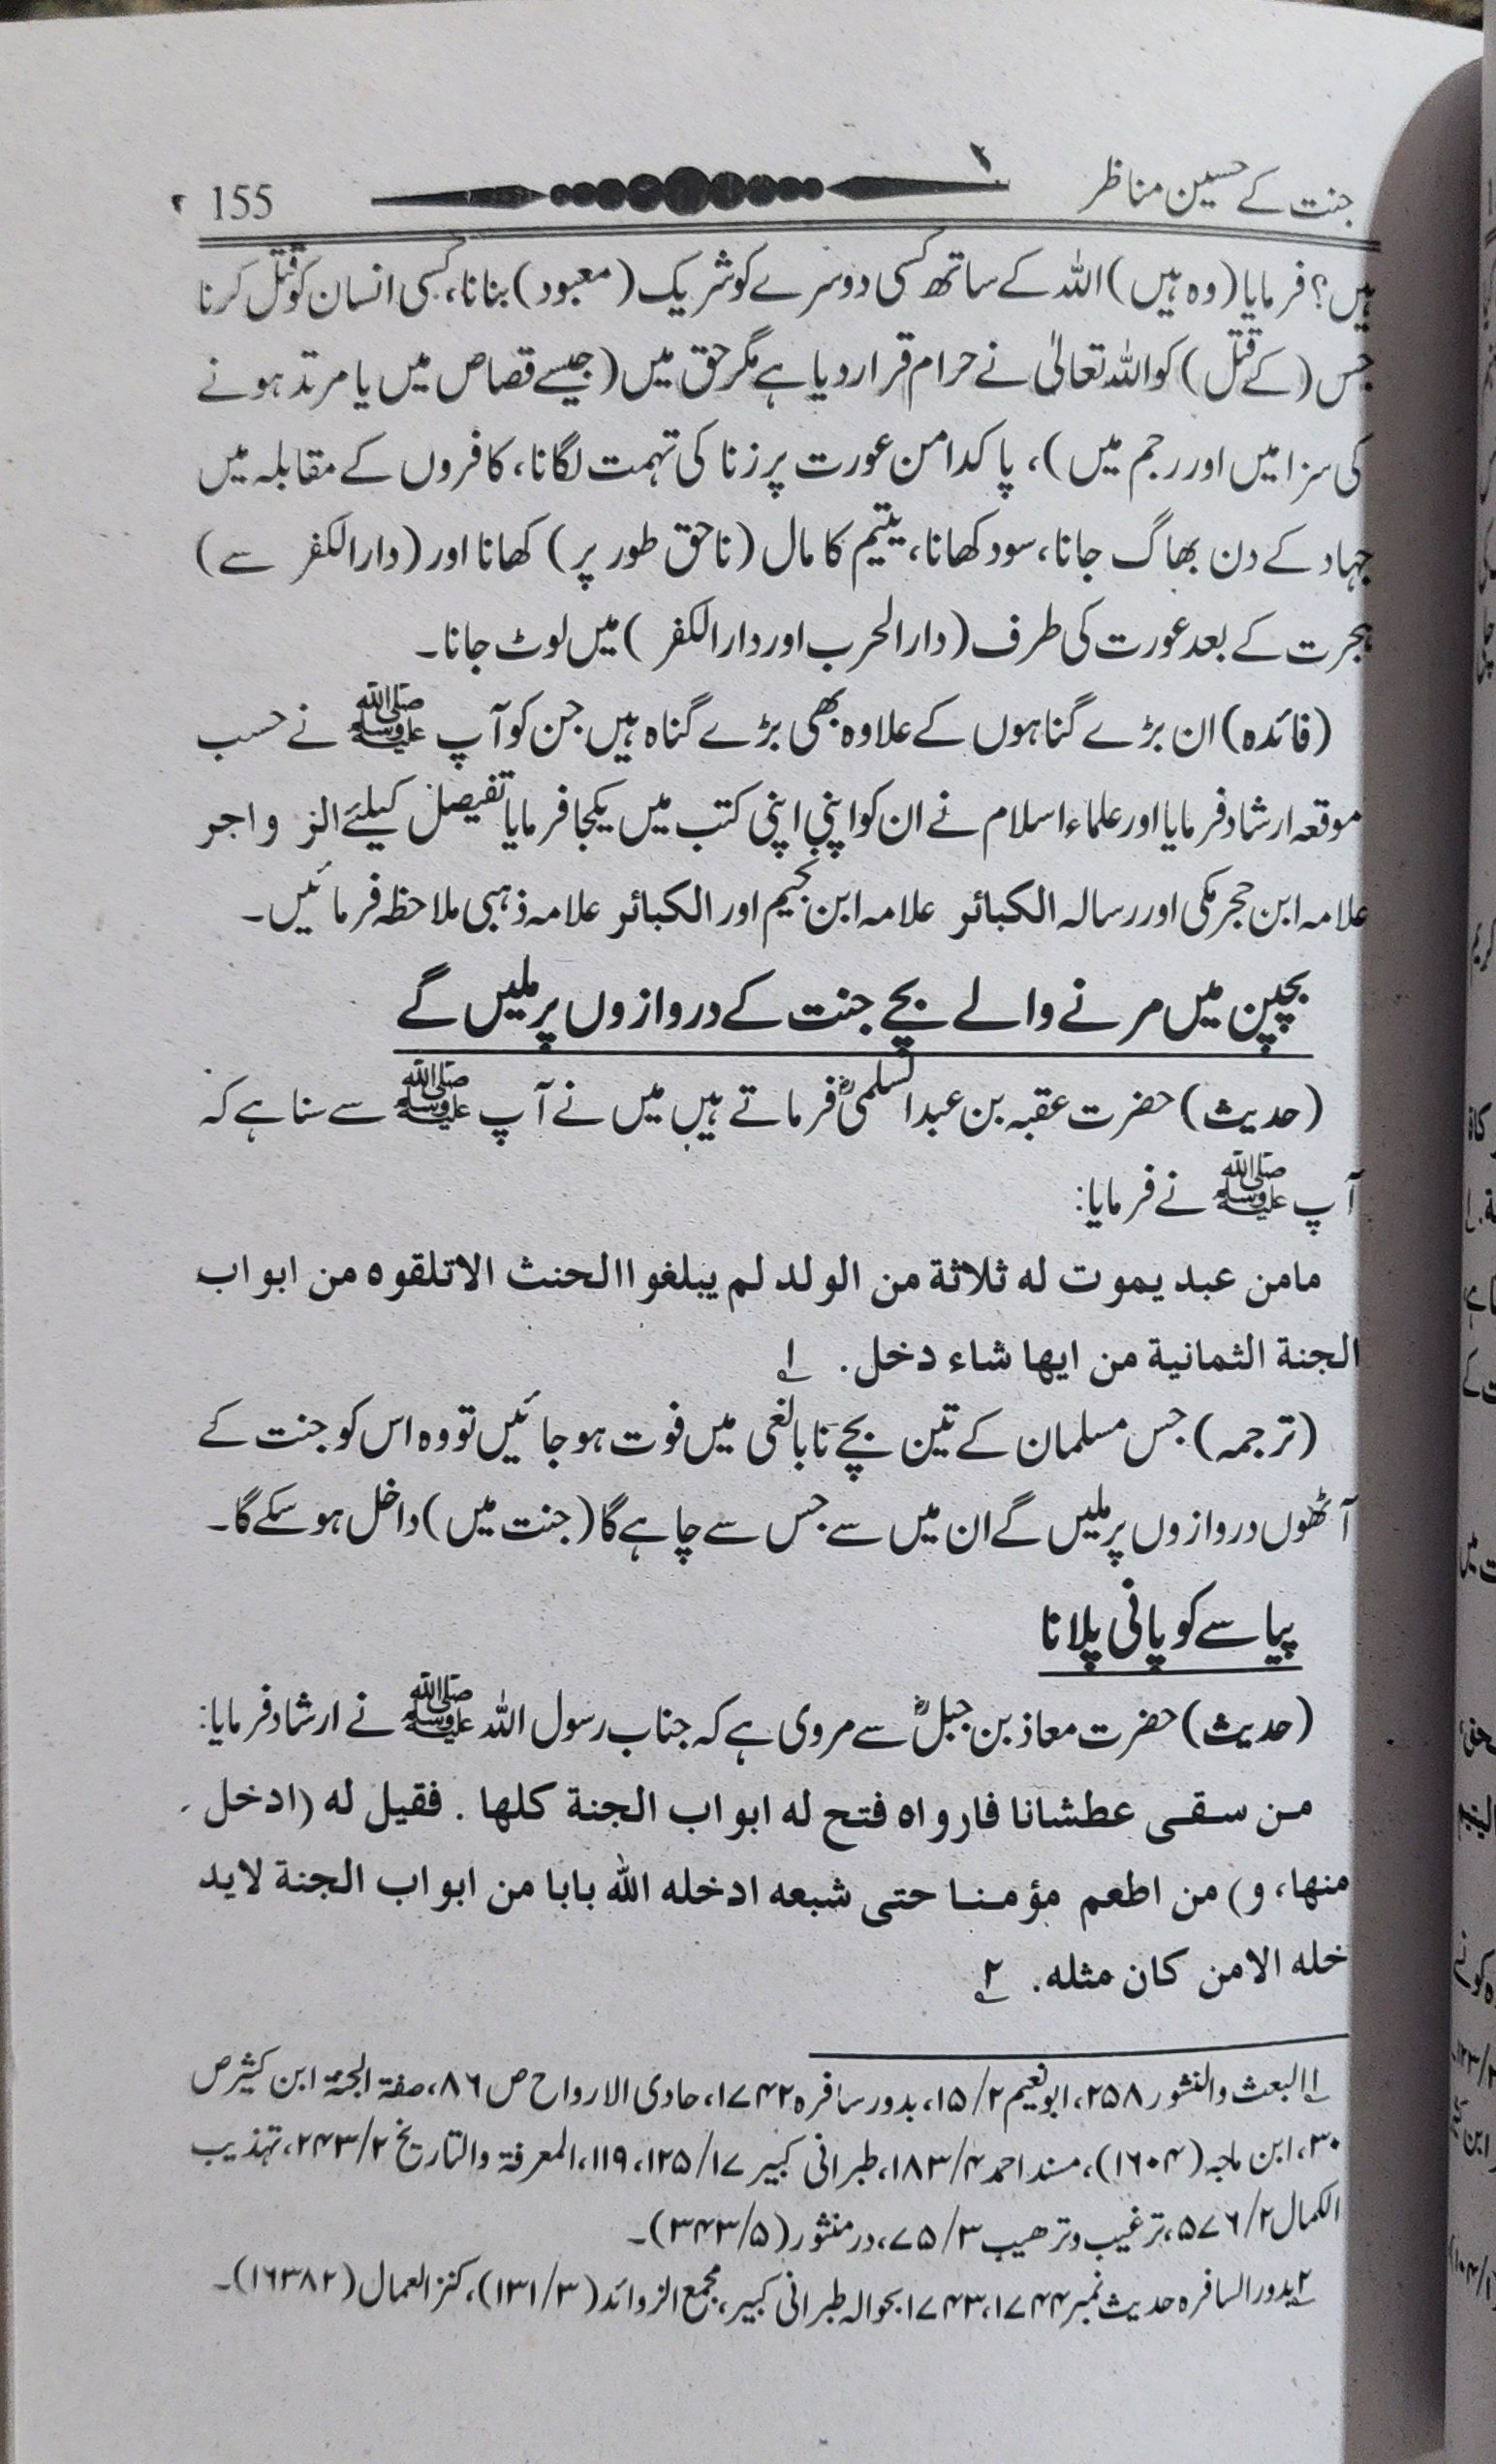 جنت کے حسین مناظر 155
ہیں؟ فرمایا (وہ ہیں) اللہ کے ساتھ کسی دوسرے کو شریک (معبود) بنانا، کسی انسان کو قتل کرنا
جس (کے قتل) کو اللہ تعالیٰ نے حرام قرار دیا ہے مگر حق میں (جیسے قصاص میں یا مرتد ہونے
کی سزا میں اور رجم میں)، پاکدامن عورت پر زنا کی تہمت لگانا، کافروں کے مقابلہ میں
جہاد کے دن بھاگ جانا، سود کھانا، یتیم کا مال (ناحق طور پر) کھانا اور (دارالکفر سے)
ہجرت کے بعد عورت کی طرف (دارالحرب اور دارالکفر) میں لوٹ جانا۔
(فائدہ) ان بڑے گناہوں کے علاوہ بھی بڑے گناہ ہیں جن کو آپ ﷺ نے حسب
موقعہ ارشاد فرمایا اور علماء اسلام نے ان کو اپنی اپنی کتب میں یکجا فرمایا تفصیل کیلئے الزواجر
علامہ ابن حجر مکی اور رسالہ الکبائر علامہ ابن نجیم اور الکبائر علامہ ذہبی ملاحظہ فرمائیں۔
بچپن میں مرنے والے بچے جنت کے دروازوں پر ملیں گے
(حدیث) حضرت عقبہ بن عبد السلمیؓ فرماتے ہیں میں نے آپ ﷺ سے سنا ہے کہ
آپ ﷺ نے فرمایا:
مامن عبد یموت له ثلاثة من الولد لم یبلغوا الحنث الاتلقوه من ابواب
الجنة الثمانیة من ایها شاء دخل. ۱
(ترجمہ) جس مسلمان کے تین بچے نابالغی میں فوت ہو جائیں تو وہ اس کو جنت کے
آٹھوں دروازوں پر ملیں گے ان میں سے جس سے چاہے گا (جنت میں) داخل ہو سکے گا۔
پیاسے کو پانی پلانا
(حدیث) حضرت معاذ بن جبلؓ سے مروی ہے کہ جناب رسول اللہ ﷺ نے ارشاد فرمایا:
من سقی عطشانا فارواه فتح له ابواب الجنة کلها . فقیل له (ادخل
منها، و) من اطعم مؤمنا حتی شبعه ادخله الله بابا من ابواب الجنة لاید
خله الامن کان مثله. ۲
۱ البعث والنشور ۲۵۸، ابونعیم ۱۵/۲، بدور سافرہ ۱۷۴۲، حادی الارواح ص ۸۶، صفۃ الجنۃ ابن کثیر ص
۳۰، ابن ماجہ (۱۶۰۴)، مسند احمد ۱۸۳/۴، طبرانی کبیر ۱۲۵/۱۷، ۱۱۹، المعرفۃ والتاریخ ۲۴۳/۲، تہذیب
الکمال ۵۷۶/۲، ترغیب وترھیب ۷۵/۳، درمنثور (۳۴۳/۵)۔
۲ بدور السافرہ حدیث نمبر ۱۷۴۴، ۱۷۴۳ بحوالہ طبرانی کبیر، مجمع الزوائد (۱۳۱/۳)، کنز العمال (۱۶۳۸۲)۔